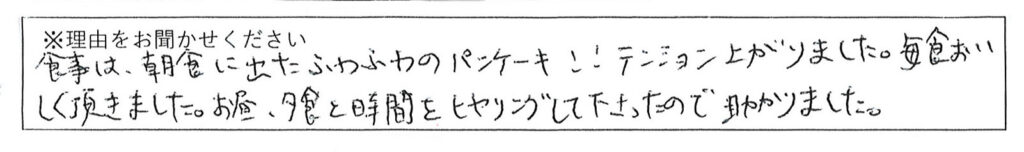 ※理由をお聞かせください
食事は、朝食に出たふわふわのパンケーキ!!テンション上がりました。毎食おい
しく頂きました。お昼、夕食と時間をヒヤリングして下さったので助かりました。